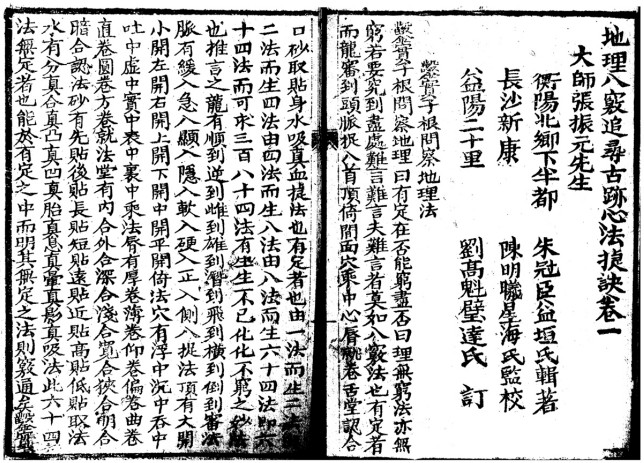 地理八竅追尋古跡心法㨂訣卷一
大師張振元先生
衡陽北鄉下半都 朱冠臣益垣氏輯著
長沙新康 陳明曦星海氏監校
益陽二十里 劉高魁壁達氏 訂
鑿實子根問察地理法
鑿實子根問察地理曰有定在否能窮盡否曰理無窮法亦無
窮若要究到盡處難言夫難言者莫如八竅法也有定者
而龍審到頭脈捉入首頂倚間面穴乘中心唇 卷舌堂認合
口砂取貼身水吸真血提法也有定者也由一法而生二
二法而生四法由四法而生八法由八法而生六十四法即六
十四法而可求三百八十四法有生生不已化化不窮之妙法
也推言之龍有順到逆到雌到雄到潛到飛到橫到倒到審法
脈有緩入急入顯入隱入軟入硬入正入側入捉法頂有大開
小開左開右開上開下開中開平開倚法穴有浮中沉中吞中
吐中虛中實中表中裏中乘法唇有厚卷薄卷仰卷偏卷曲卷
直卷圓卷方卷就法堂有內合外合深合淺合寬合狹合明合
暗合認法砂有先貼後貼長貼短貼遠貼近貼高貼低貼取法
水有分真合真凸真凹真胎真息真暈真影真吸法此六十四
法無定者也能於有定之中而明其無定之法則竅通矣鑿實